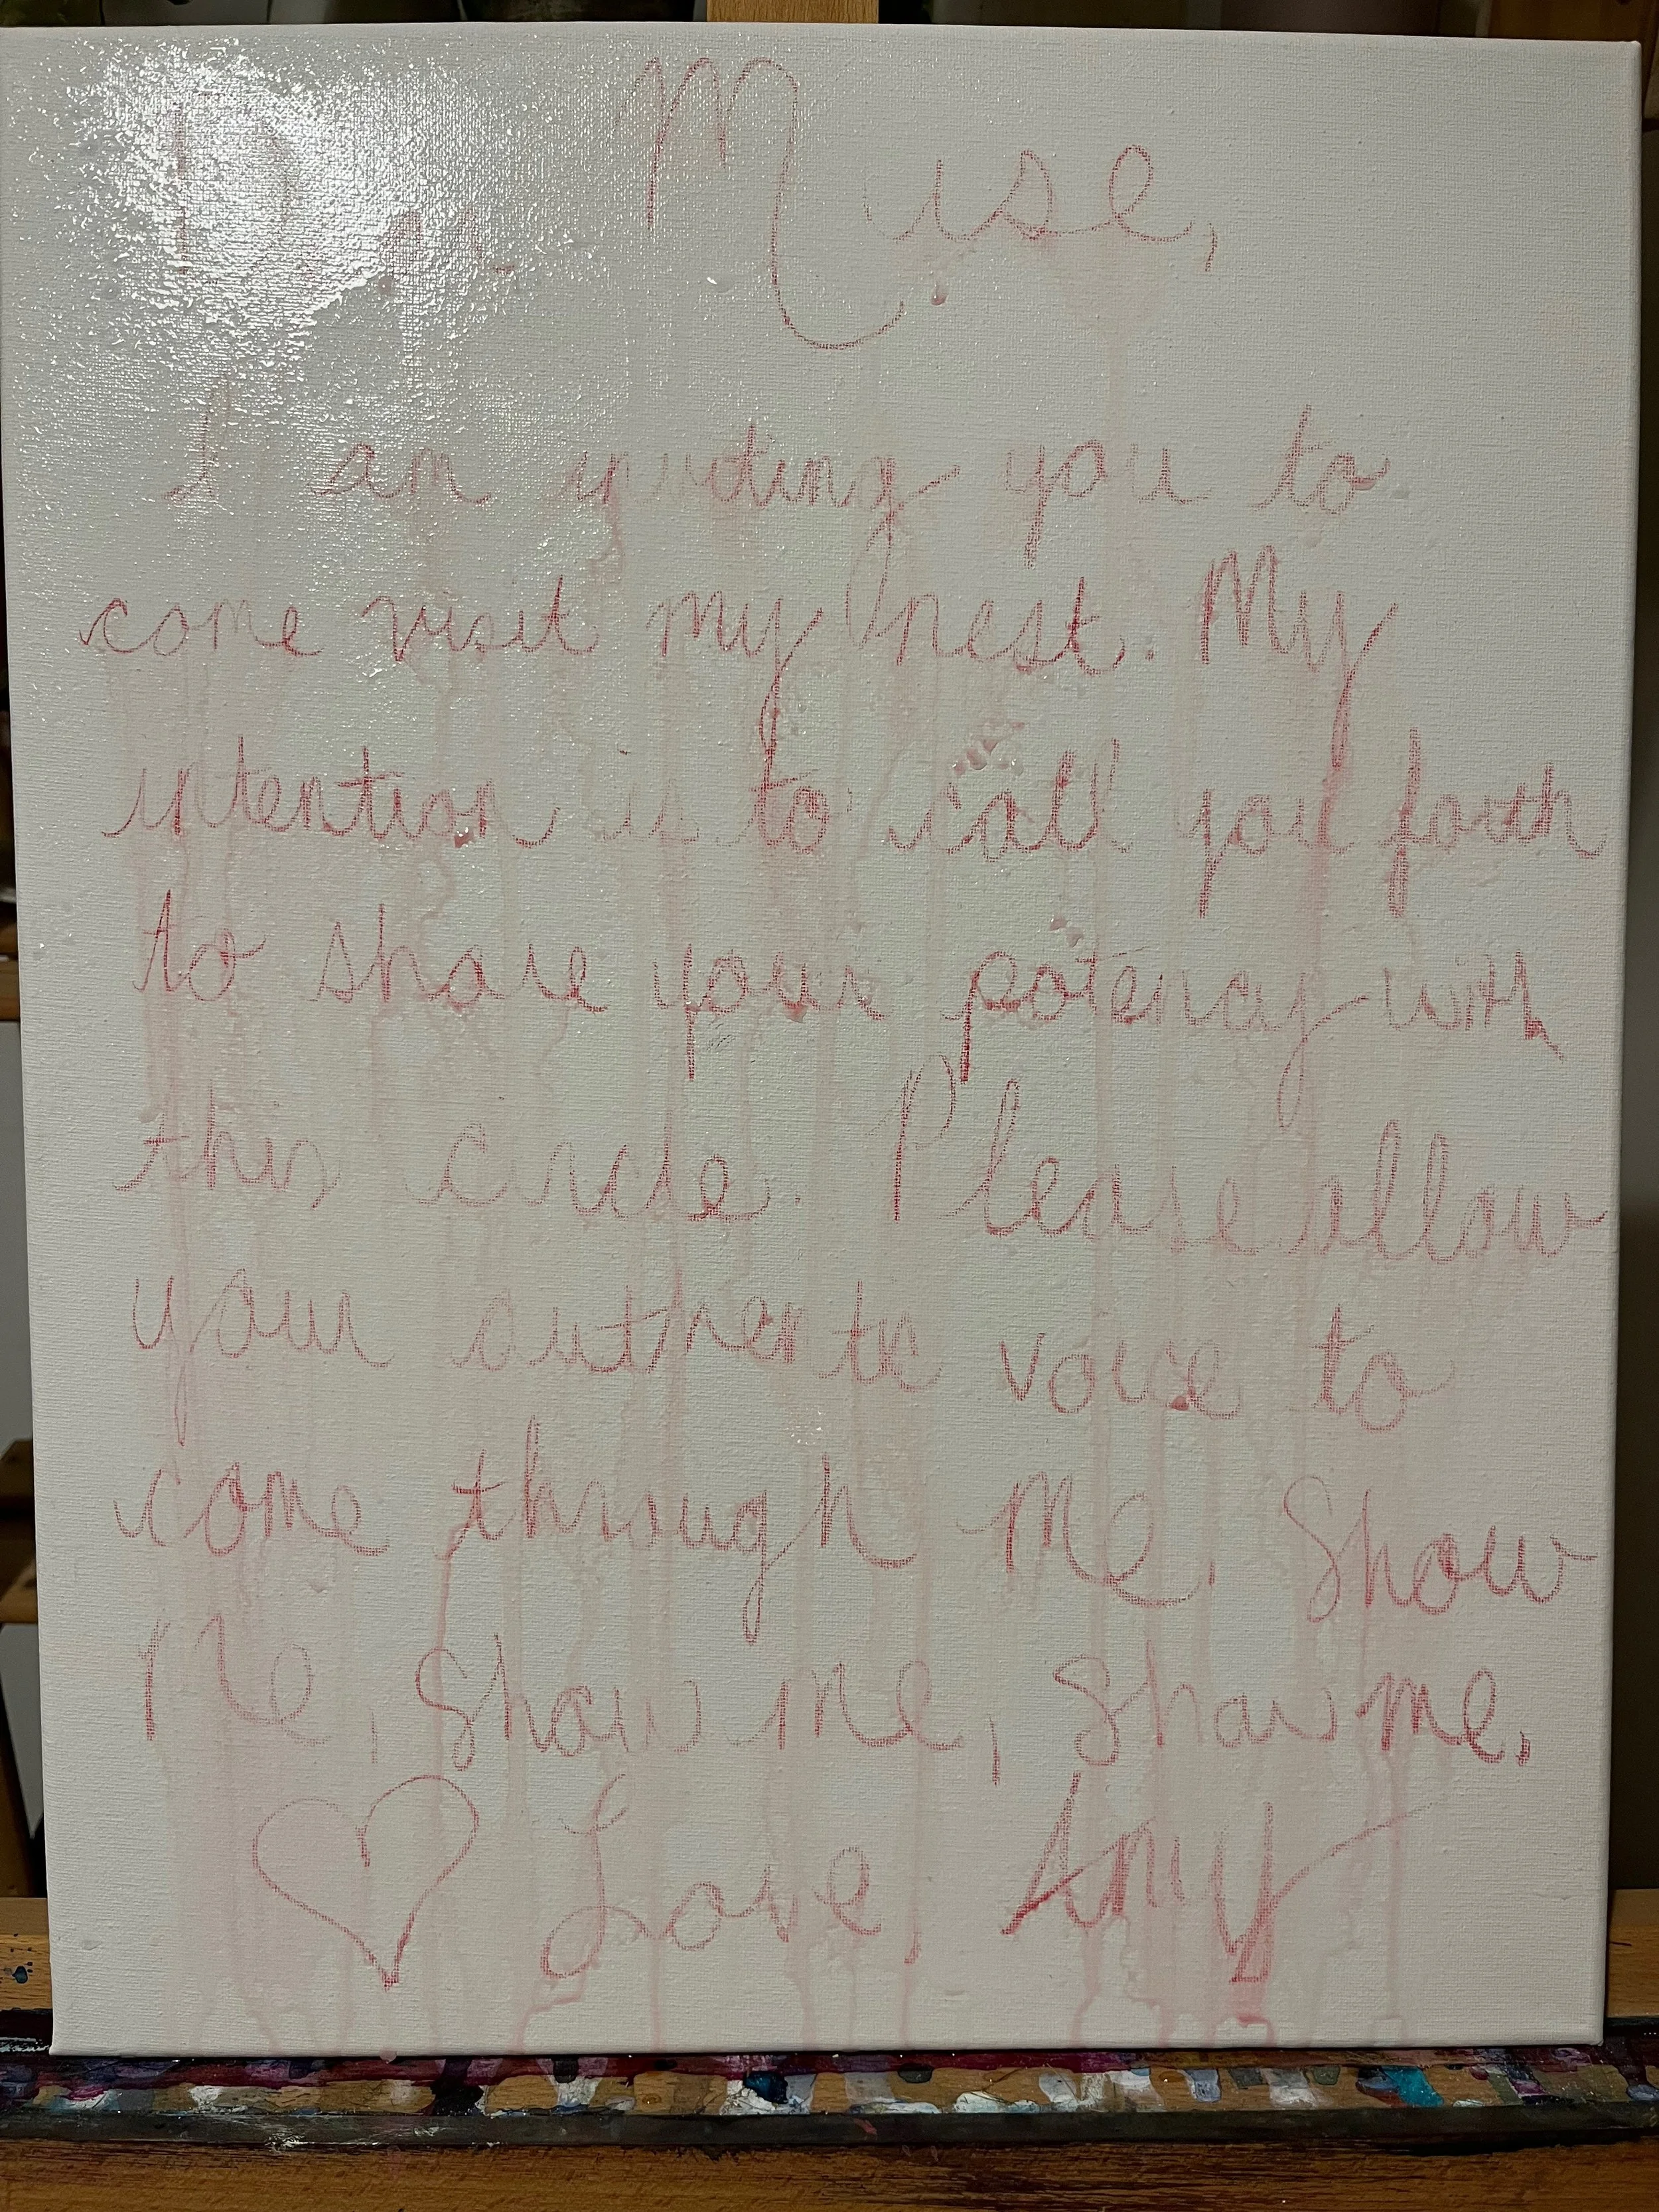 Dear Muse,
I am inviting you to
come visit my nest. My
intention is to call you forth
to share your potency with
this circle. Please allow
your authentic voice to
come through me. Show
me, Show me, Show me,
Love, Amy